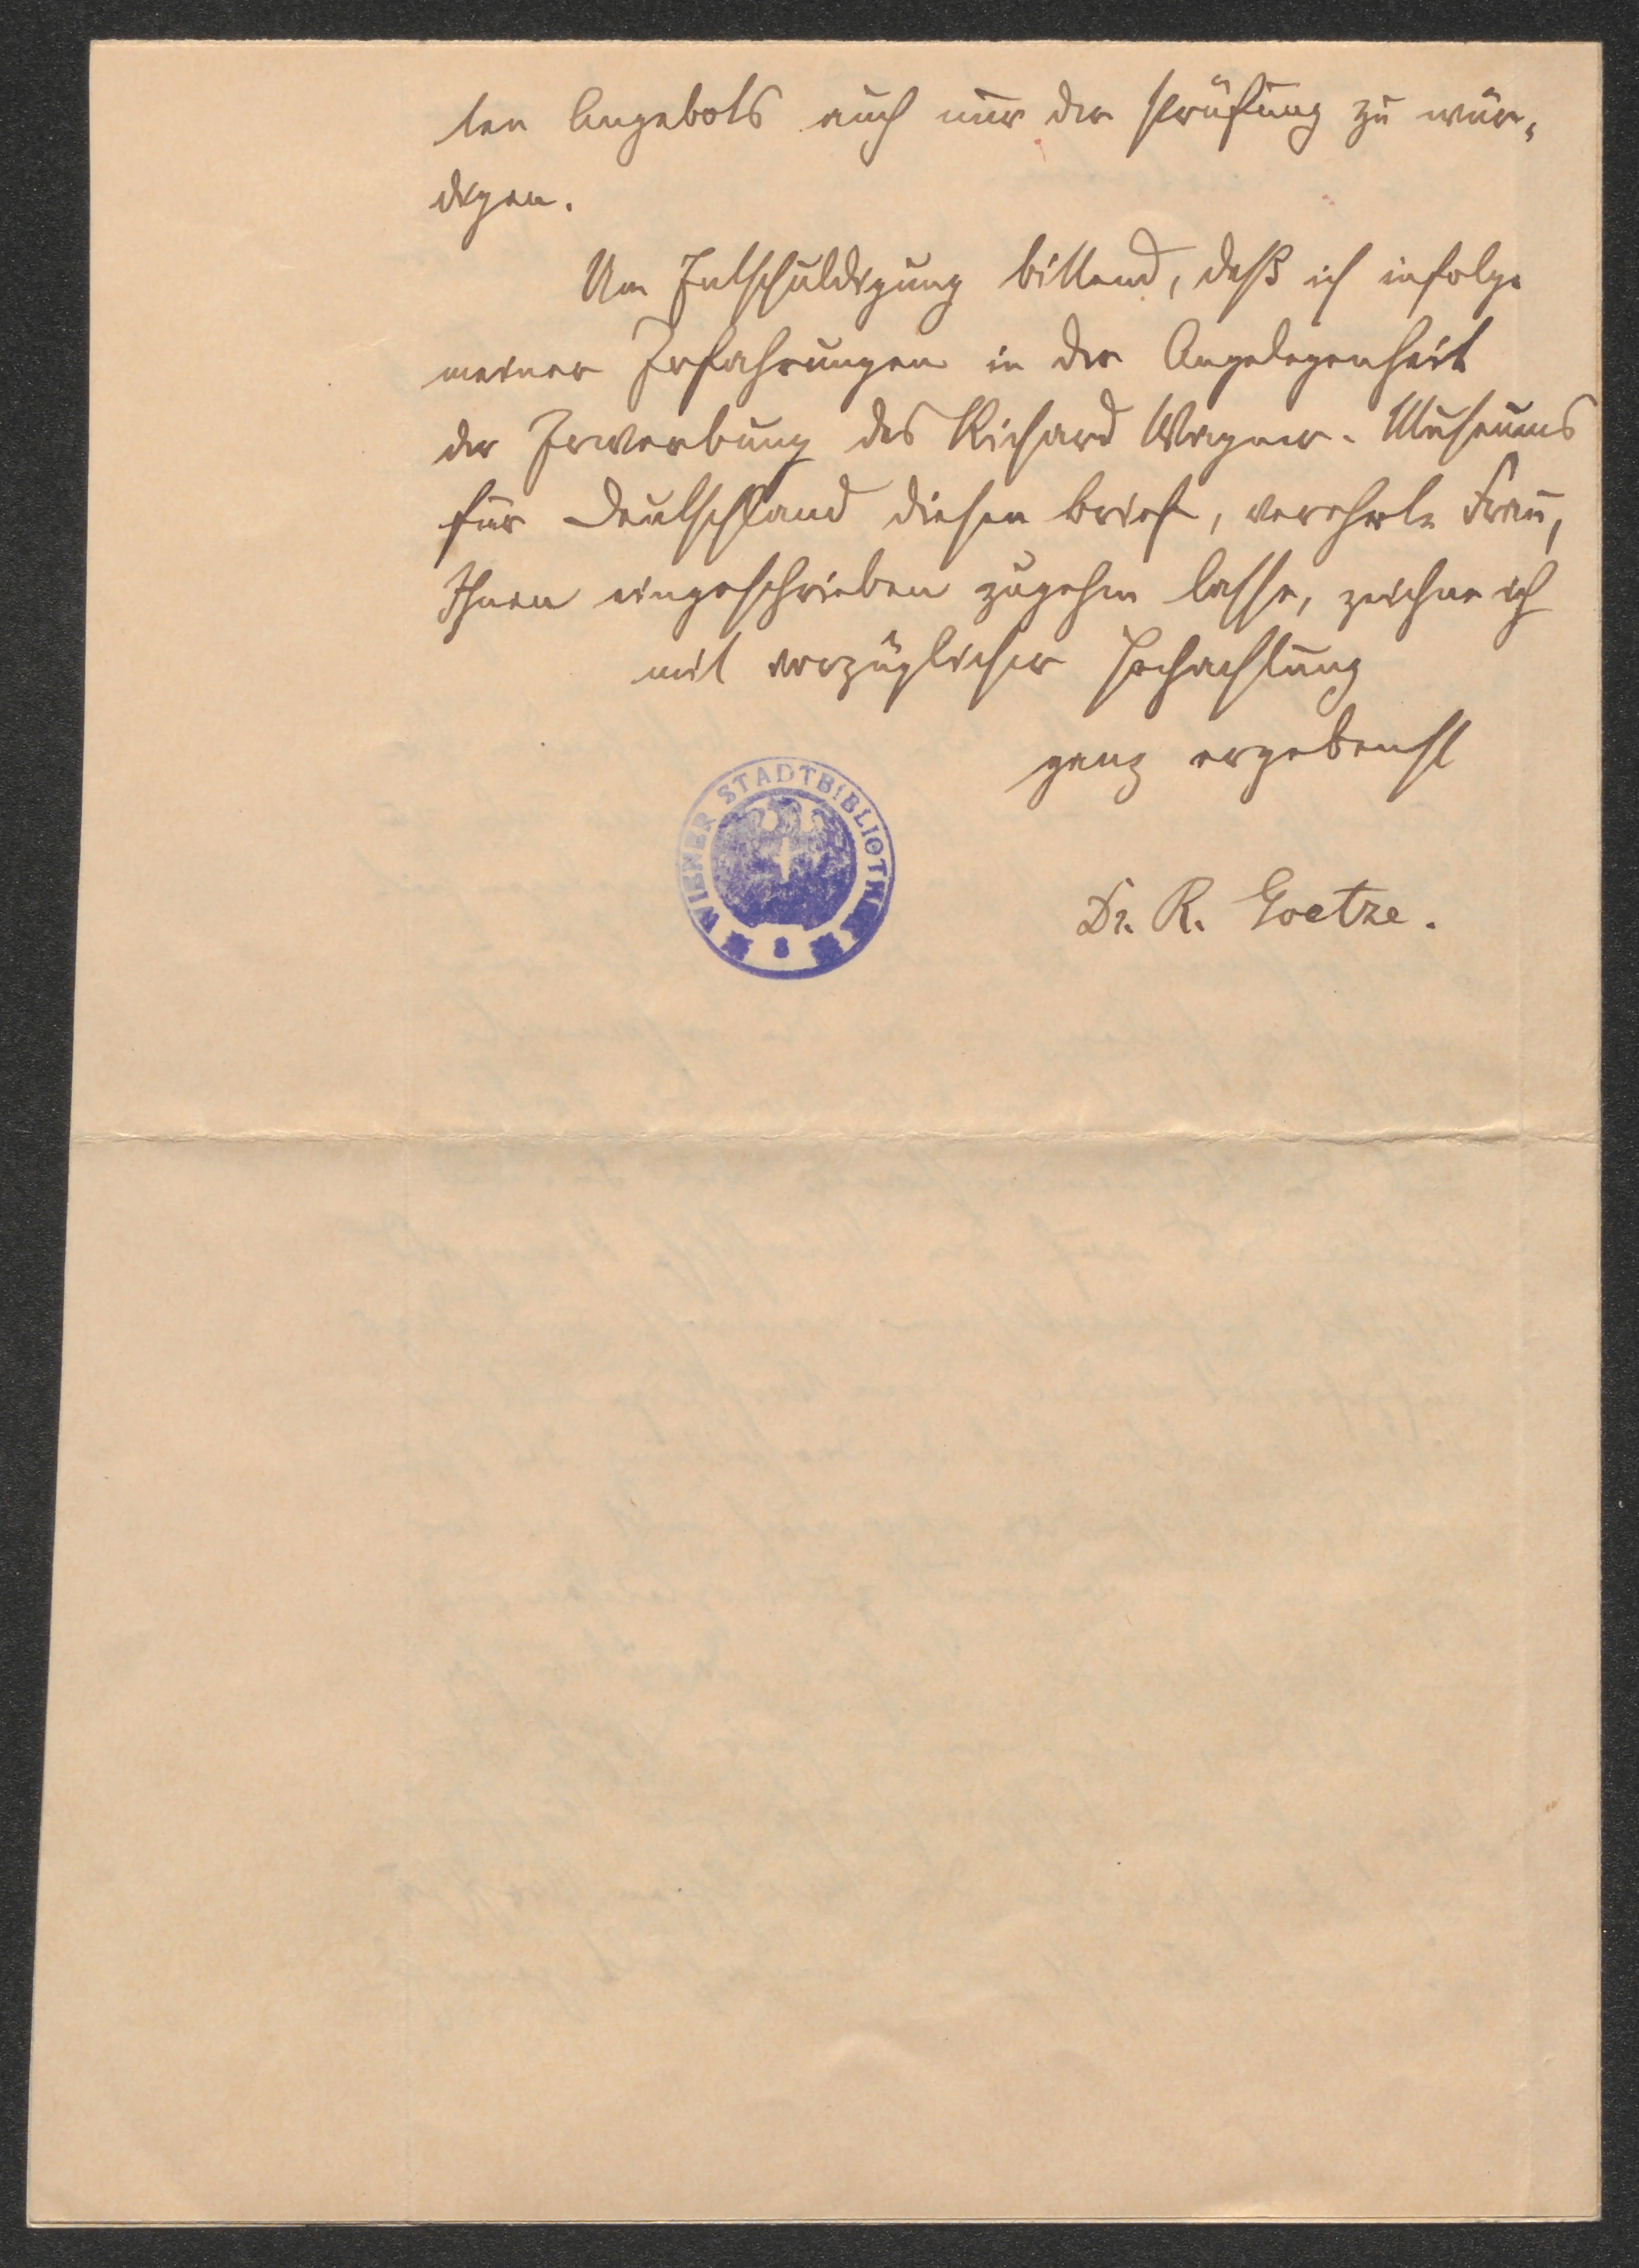 ten Angebots auch nur der Prüfung zu wür-
digen.
Um Entschuldigung bittend, daß ich infolge
meiner Erfahrungen in der Angelegenheit
der Erwerbung des Richard Wagner-Museums
für Deutschland diesen Brief, verehrte Frau,
Ihnen eingeschrieben zugehen lasse, zeichne ich
mit vorzüglicher Hochachtung
ganz ergebenst
WIENER STADTBIBLIOTHEK
8
Dr. R. Goetze.